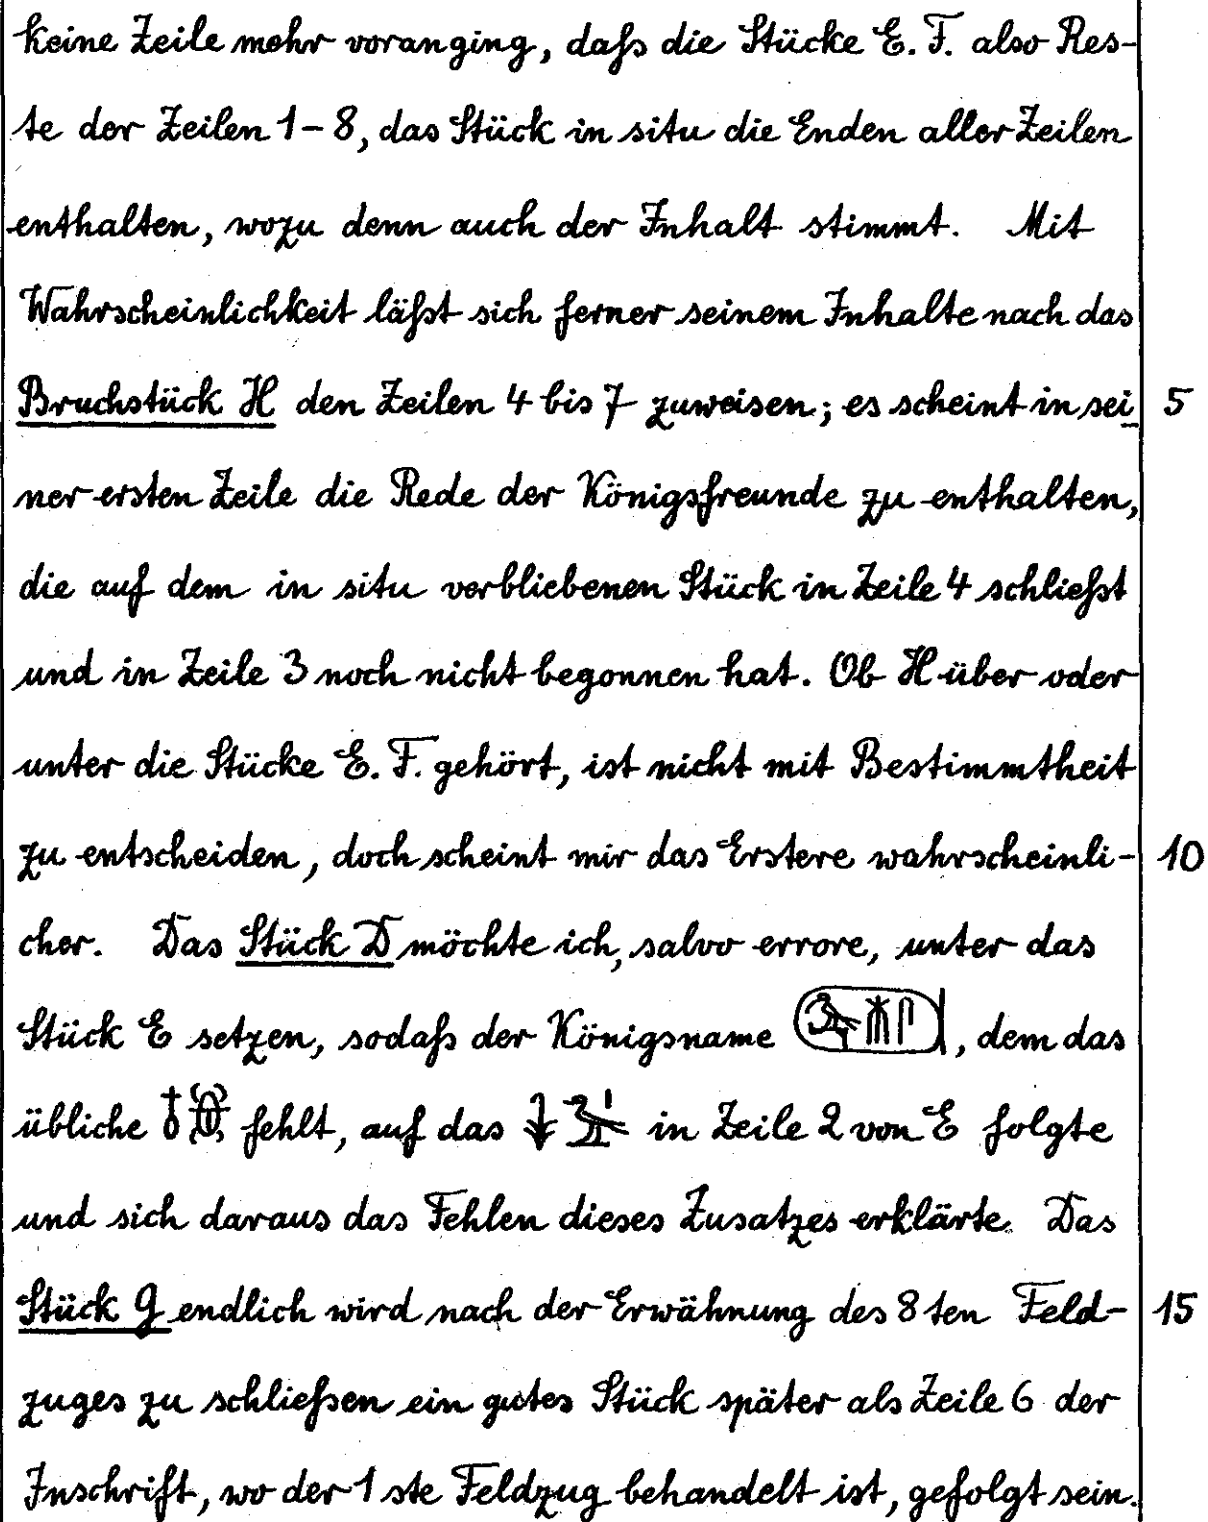 keine Zeile mehr voranging, daſs die Stücke E. F. also Res-
te der Zeilen 1-8, das Stück in situ die Enden aller Zeilen
enthalten, wozu denn auch der Inhalt stimmt. Mit
Wahrscheinlichkeit läſst sich ferner seinem Inhalte nach das
Bruchstück H den Zeilen 4 bis 7 zuweisen; es scheint in sei 5
ner ersten Zeile die Rede der Königsfreunde zu enthalten,
die auf dem in situ verbliebenen Stück in Zeile 4 schlieſst
und in Zeile 3 noch nicht begonnen hat. Ob H über oder
unter die Stücke E. F. gehört, ist nicht mit Bestimmtheit
zu entscheiden, doch scheint mir das Erstere wahrscheinli- 10
cher. Das Stück D möchte ich, salvo errore, unter das
Stück E setzen, sodaſs der Königsname , dem das
übliche fehlt, auf das in Zeile 2 von E folgte
und sich daraus das Fehlen dieses Zusatzes erklärte. Das
Stück G endlich wird nach der Erwähnung des 8 ten Feld- 15
zuges zu schlieſsen ein gutes Stück später als Zeile 6 der
Inschrift, wo der 1 ste Feldzug behandelt ist, gefolgt sein.